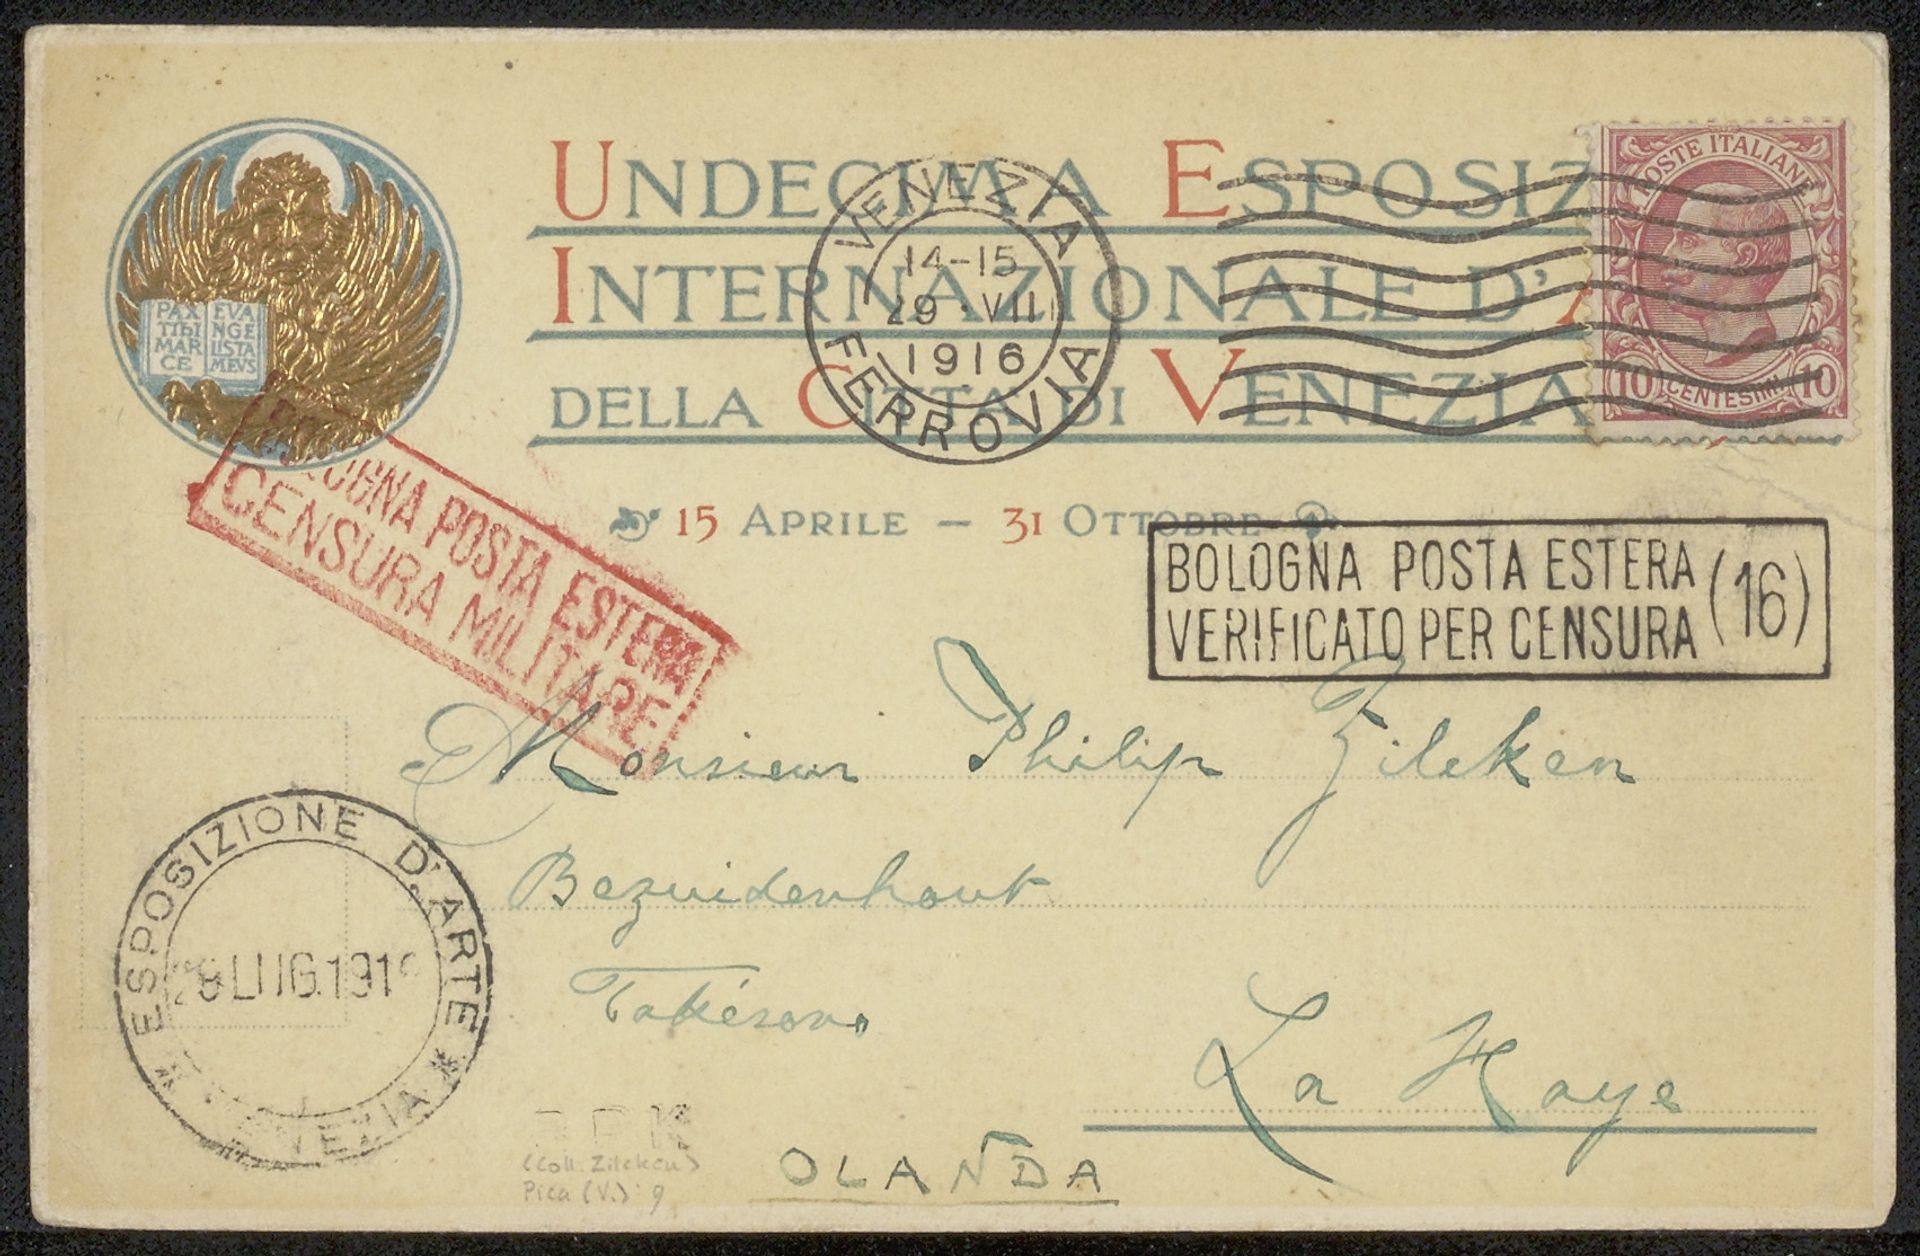 UNDECIMA ESPOSIZ
INTERNAZIONALE D'A
DELLA CITTÀ DI VENEZIA
15 APRILE – 31 OTTOBRE
PAX TIBI MARCE
EVANGELISTA MEVS
VENEZIA
14-15
29 · VII
1916
FERROVIA
POSTE ITALIANE
10 CENTESIMI 10
BOLOGNA POSTA ESTERA
CENSURA MILITARE
BOLOGNA POSTA ESTERA
VERIFICATO PER CENSURA (16)
Monsieur Philip Zilcken
Bezuidenhout
ESPOSIZIONE D'ARTE
LUG. 191
VENEZIA
La Haye
OLANDA
(Coll. Zilcken)
Pica (V.) 9